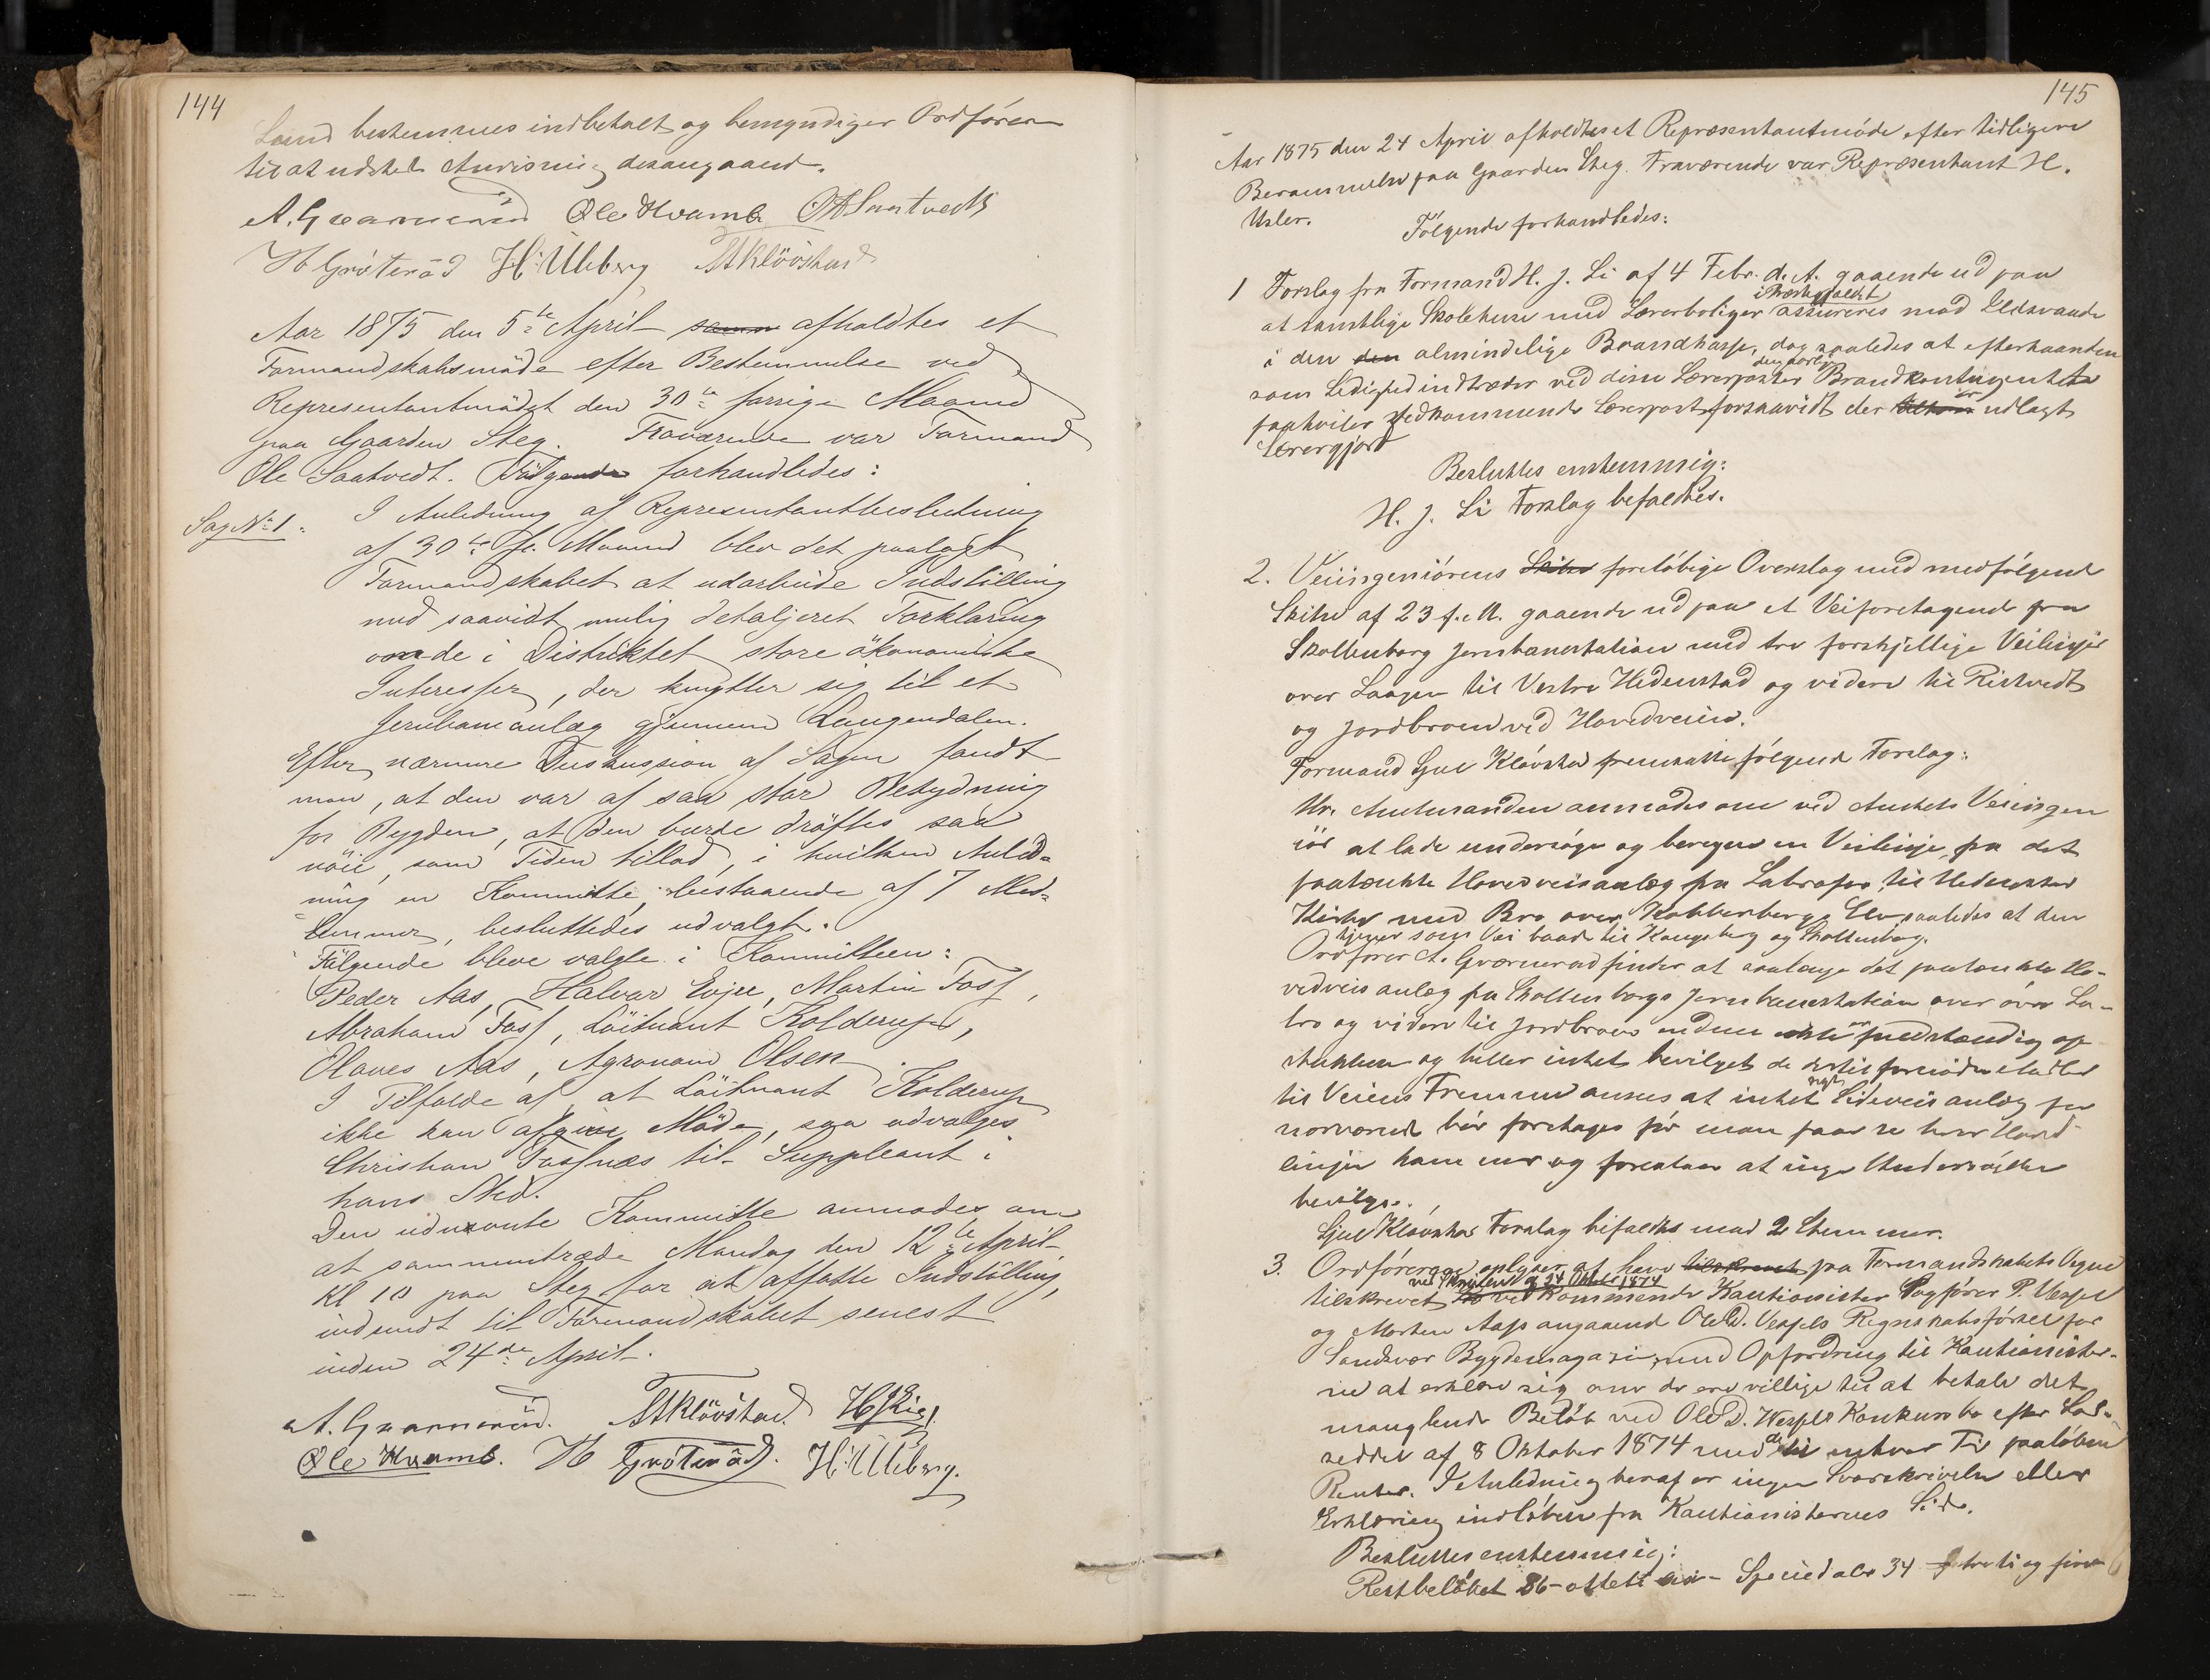 144
Sand bestemmes indbetalt og bemyndiger Ordføreren
til at udstede Anvisning desangaaend.
A. Gvarnerød Ole Hvamb O H Saatvedt
H Grøterød H: Ulleberg A Kløvstad
Aar 1875 den 5te April samm afholdtes et
Formandskabsmøde efter Bestemmelse ved
Representantmødet den 30te forrige Maaned
paa Gaarden Steg. Fraværende var Formand
Ole Saatvedt. Følgende forhandledes:
Sag No 1.
I Anledning af Representantbeslutning
af 30te f. Maaned blev det paalagt
Formandskabet at udarbeide Indstilling
med saavidt mulig detaljeret Forklaring
over de i Distriktet store økonomiske
Interesser, der knytter sig til et
Jernbaneanlæg gjennem Laugendalen.
Efter nærmere Diskussion af Sagen fandt
man, at den var af saa stor Betydning
for Bygden, at den burde drøftes saa
nøie, som Tiden tillod, i hvilken Anled-
ning en Kommitte, bestaaende af 7 Med-
lemmer, besluttedes udvalgt.
Følgende bleve valgte i Kommitteen:
Peder Aas, Halvar Evju, Martin Foss,
Abraham Foss, Løitnant Kolderup,
Olaves Aas, Agronom Olsen.
I Tilfælde af at Løitnant Kolderup
ikke kan afgive Møde, saa udvalges
Christian Fossnæs til Suppleant i
hans Sted.
Den udnævnte Kommitte anmodes om
at sammentræde Mandag den 12te April
Kl 10 paa Steg for at affatte Indstilling,
indsendt til Formandskabet senest
inden 24de April.
A. Gvarnerød. A Kløvstad. H J Lie.
Ole Hvamb. H Grøterød. H: Ulleberg.
145
Aar 1875 den 24 April afholdtes et Repræsentantmøde efter tidligere
Berammelse paa Gaarden Steg. Fraværende var Repræsentant H.
Usler. Følgende forhandledes:
1 Forslag fra Formand H. J. Li af 4 Febr. d. A. gaaende ud paa
at samtlige Skolehuse med Lærerboliger assureres mod Ildsvaade
i den den almindelige Brandkasse, dog saaledes at efterhaanden
som Ledighed indtræder ved disse Lærerposter Brandkontingentet
paahviler vedkommende Lærerpost forsaavidt der er udlagt
Lærerjord
Besluttes enstemmig:
H. J. Li Forslag befaldtes.
2. Veiingeniørens Skitse foreløbige Overslag med medfølgende
Skitse af 23 f. M. gaaende ud paa et Veiforetagende fra
Skollenborg Jernbanestation med tre forskjellige Veilinjer
over Laagen til Vestre Hedenstad og videre til Ristvedt
og Jordbroen ved Hovedveien.
Formand Gjul Kløvstad fremsatte følgende Forslag:
Hr. Amtmanden anmodes om ved Amtets Veiingen
iør at lade undersøge og beregne en Veilinje fra det
paatænkte Hovedveisanlæg fra Labrofos til Hedenstad
Kirke med Bro over Kobberbergs Elv saaledes at den
tjener som Vei baade til Kongsberg og Skollenborg.
Ordfører A. Gvarnerød finder at saalænge det paatænkte Ho-
vedveisanlæg fra Skollenborgs Jernbanestation over øvre La-
bro og videre til Jordbroen endnu ikke er fuldstændig op
stukken og heller intet bevilget de dertil fornødne Midler
til Veiens Fremme ansees at intet nyt Sideveisanlæg for
nærværende bør foretages før man faar se hvor Hoved
linjen kommer og foreslaar at inge Undersøgelse
bevilges.
Gjul Kløvstads Forslag bifaldtes mod 2 Stemmer.
3. Ordføreren oplyser at have tilskrevet paa Formandskabets Vegne
ved Skrivelse af 24 Oktbr 1874
tilskrevet vedkommende Kautionister Sagfører P. Wessel
og Morten Aass angaaend Ole D. Wessels Regnskabsførsel for
Sandsvær Bygdemagasin, med Opfordring til Kautionister-
ne at erklære sig om de ere villige til at betale det
manglende Beløb ved Ole D. Wessels Konkursbo efter Lod-
seddel af 8 Oktober 1874 med de til enhver Tid paaløbne
Renter. I Anledning heraf er ingen Svarskrivelse eller
Erklæring indløben fra Kautionisternes Side.
Besluttes enstemmig:
Restbeløbet 86 - otteti sex - Speciedaler 34 tretti og fire